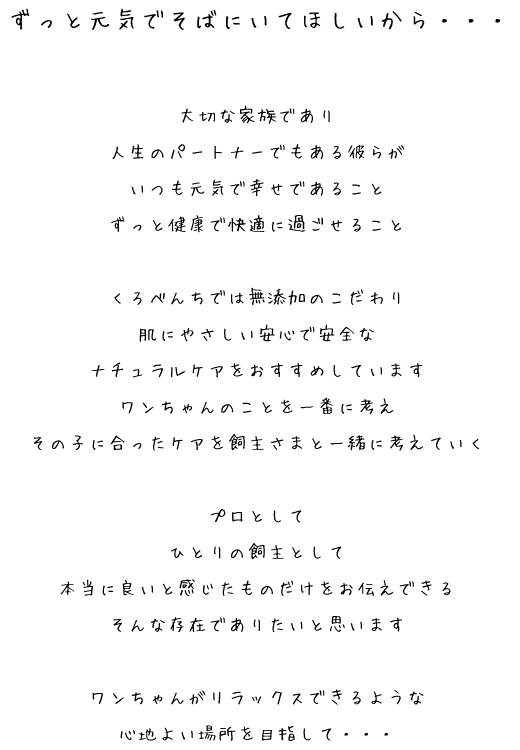 ずっと元気でそばにいてほしいから・・・
大切な家族であり
人生のパートナーでもある彼らが
いつも元気で幸せであること
ずっと健康で快適に過ごせること
くろべんちでは無添加のこだわり
肌にやさしい安心で安全な
ナチュラルケアをおすすめしています
ワンちゃんのことを一番に考え
その子に合ったケアを飼主さまと一緒に考えていく
プロとして
ひとりの飼主として
本当に良いと感じたものだけをお伝えできる
そんな存在でありたいと思います
ワンちゃんがリラックスできるような
心地よい場所を目指して・・・